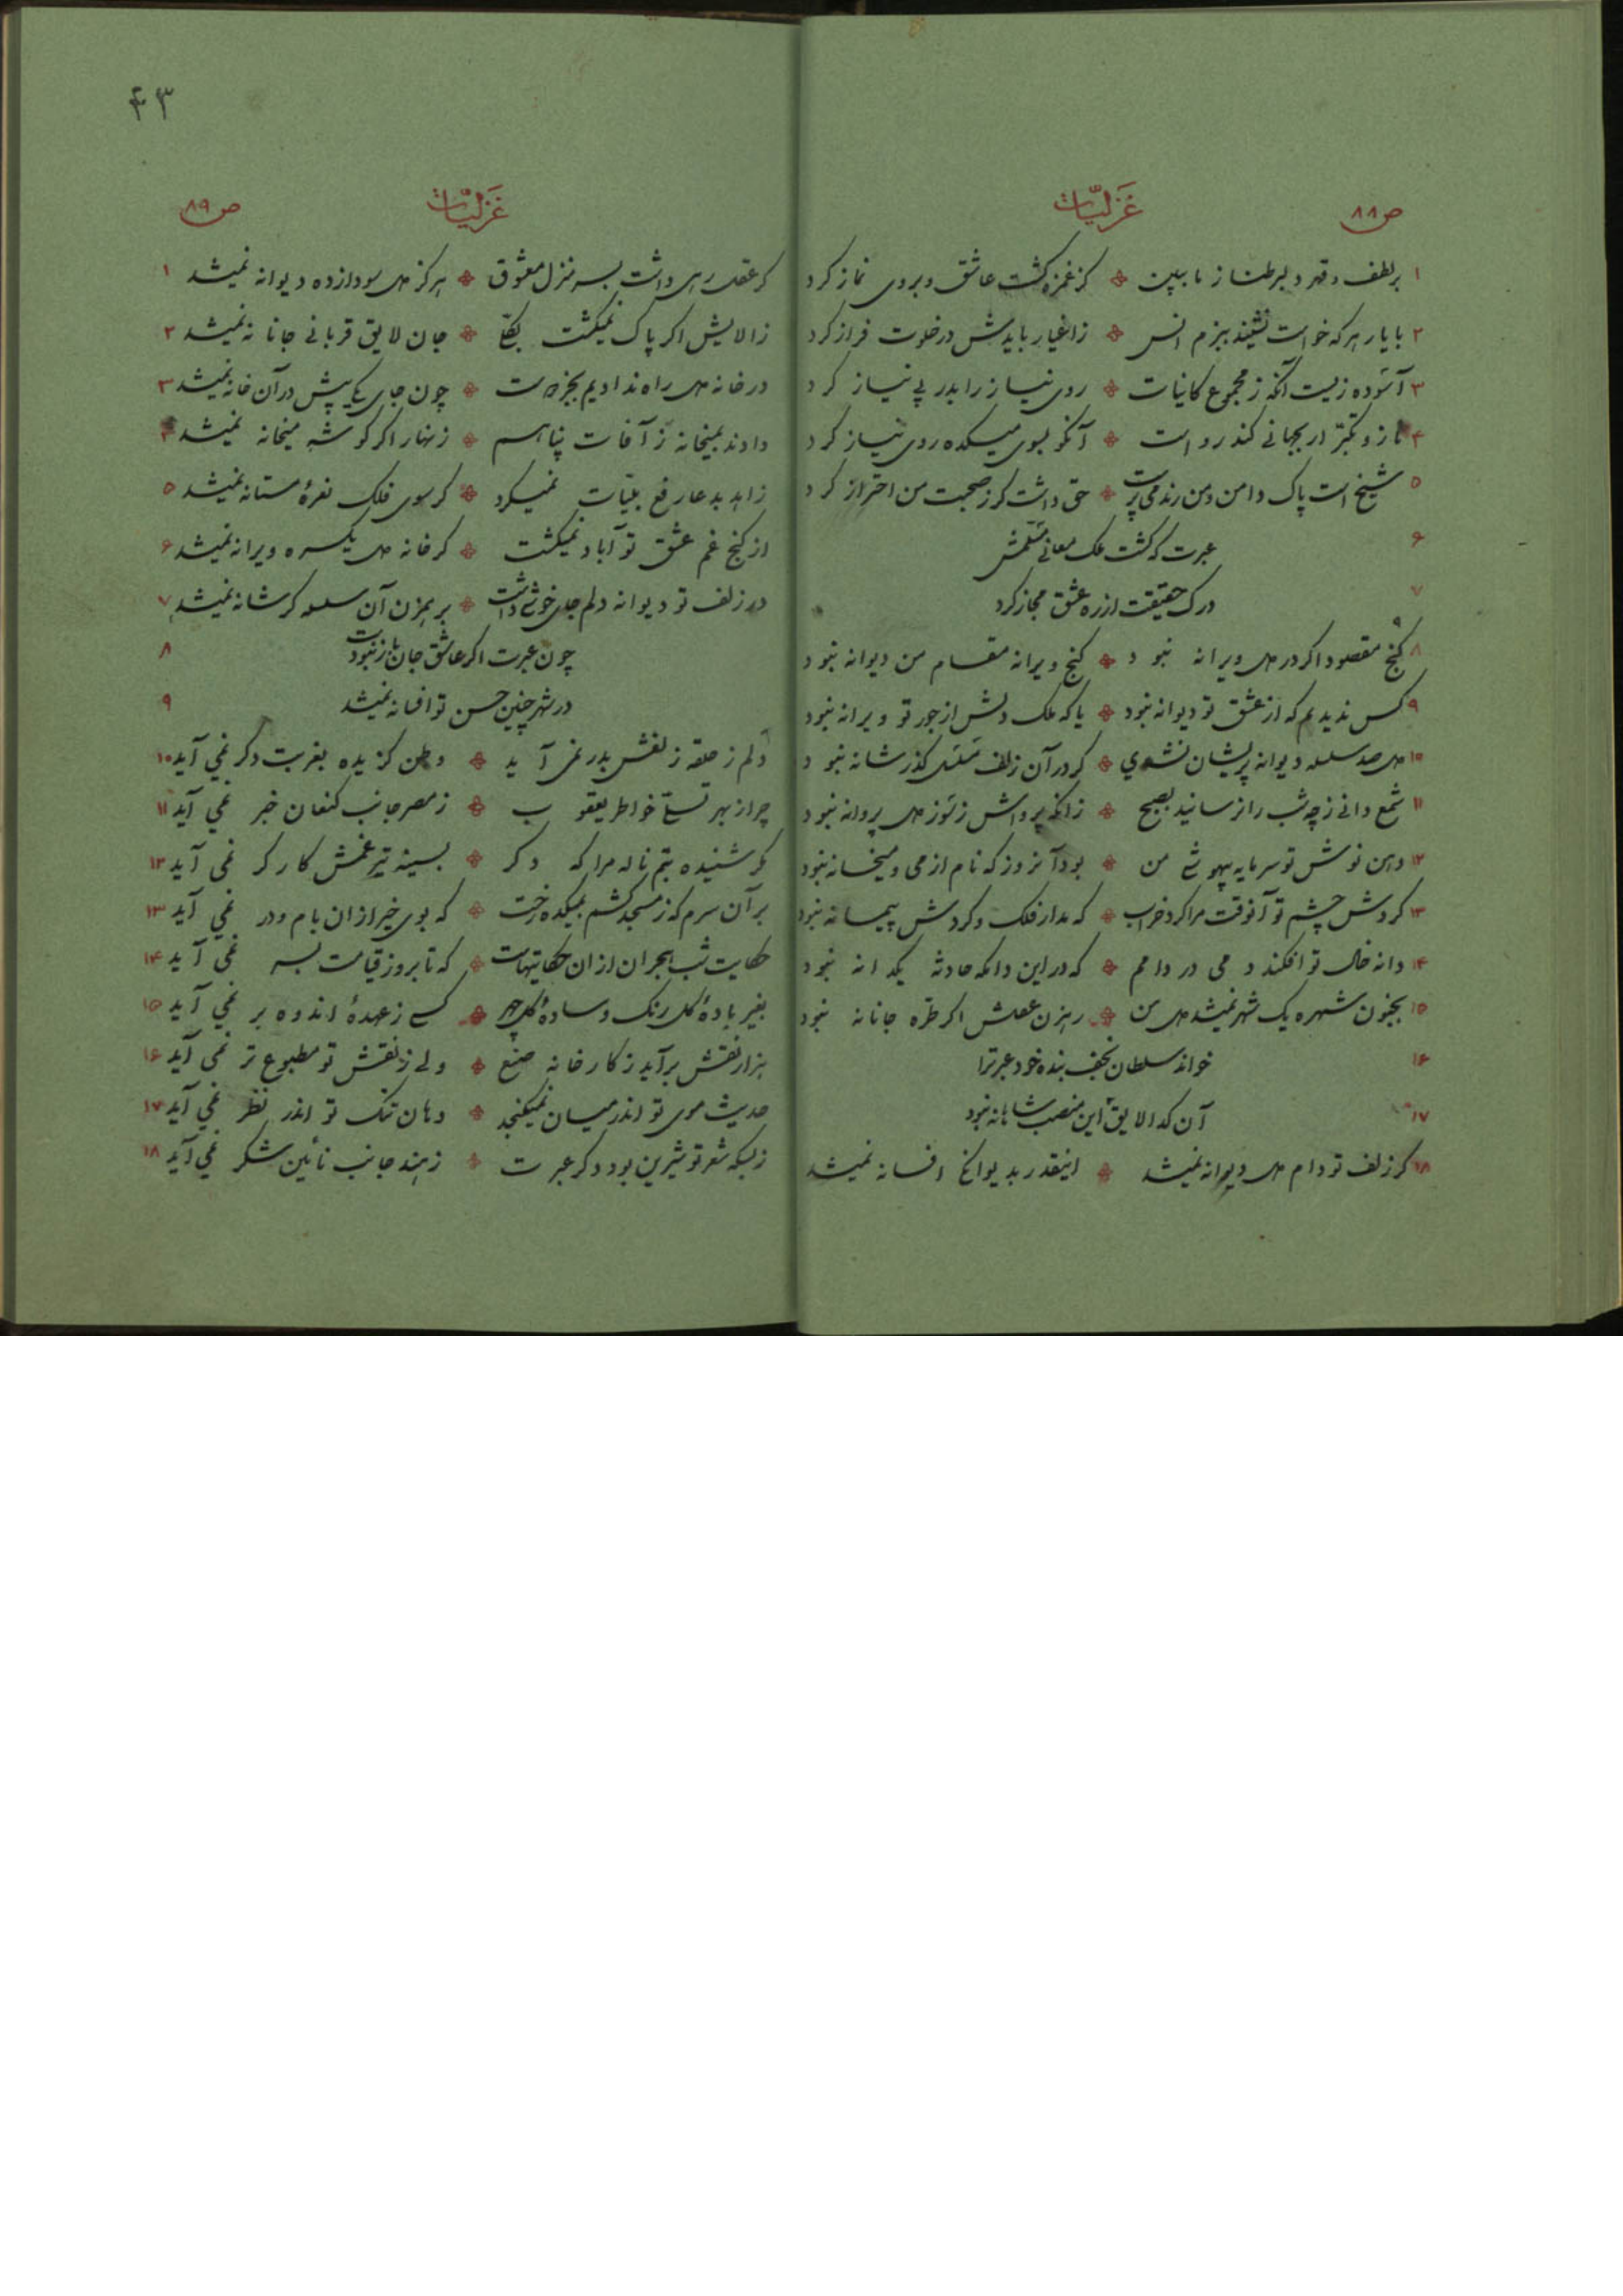 ص ۸۸
غزلیّات
۱ بر لطف و قهر دلبر طناز ما ببین کز غمزه کشت عاشق و بر وی نماز کرد
۲ با یار هر که خواست نشیند ببزم انس ز اغیار بایدش در خلوت فراز کرد
۳ آسوده زیست آنکه ز مجموع کاینات روی نیاز را بدر بی نیاز کرد
۴ ناز و تکبّر ار بجهانی کند رواست آنکو بسوی میکده روی نیاز کرد
۵ شیخ است پاک دامن و من رند می پرست حق داشت کر ز صحبت من احتراز کرد
۶ عبرت که کشت ملک معانی مسلّمش
۷ درک حقیقت از ره عشق مجاز کرد
۸ کنج مقصود اکر در دل ویرانه نبود کنج ویرانه مقام من دیوانه نبود
۹ کس ندیدیم که از عشق تو دیوانه نبود یا که ملک دلش از جور تو ویرانه نبود
۱۰ دل صد سلسله دیوانه پریشان نشدی کر در آن زلف مسلسل کذر شانه نبود
۱۱ شمع دانی ز چه شب را نرسانید بصبح زانکه پرواش ز سوز دل پروانه نبود
۱۲ دهن نوش تو سرمایه بیهوشی من بود آنروز که نام از می و میخانه نبود
۱۳ کردش چشم تو آنوقت مرا کرد خراب که مدار فلک و کردش پیمانه نبود
۱۴ دانه خال تو افکند دمی در دامم که در این دامکه حادثه یکدانه نبود
۱۵ بجنون شهره یک شهر نمیشد دل من رهزن عقلش اکر طرّه جانانه نبود
۱۶ خواند سلطان نجف بنده خود عبرت را
۱۷ آن کدا لایق این منصب شاهانه نبود
۱۸ کر زلف تو دام دل دیوانه نمیشد اینقدر بدیوانکی افسانه نمیشد
۴۳
غزلیّات
ص ۸۹
کر عقل رهی داشت بسر منزل معشوق هرکز دل سودازده دیوانه نمیشد ۱
ز الایش اکر پاک نمیکشت بکلّی جان لایق قربانی جانانه نمیشد ۲
در خانه دل راه ندادیم بجز دوست چون جای یکی بیش در آن خانه نمیشد ۳
دادند بمیخانه ز آفات پناهم زنهار اکر کوشه میخانه نمیشد ۴
زاهد بدعا رفع بلیّات نمیکرد کر سوی فلک نعرهٔ مستانه نمیشد ۵
از کنج غم عشق تو آباد نمیکشت کر خانه دل یکسره ویرانه نمیشد ۶
در زلف تو دیوانه دلم جای خوشی داشت بر همزن آن سلسله کر شانه نمیشد ۷
چون عبرت اکر عاشق جان باز نبودت ۸
در شهر چنین حسن تو افسانه نمیشد ۹
دلم ز حلقه زلفش بدر نمی آید وطن کزیده بغربت دکر نمی آید ۱۰
چرا ز بهر تسلّی خاطر یعقوب ز مصر جانب کنعان خبر نمی آید ۱۱
مکر شنیده بتم ناله مرا که دکر بسینه تیر غمش کارکر نمی آید ۱۲
بر آن سرم که ز مسجد کشم بمیکده رخت که بوی خیر از ان بام و در نمی آید ۱۳
حکایت شب هجران از ان حکایتهاست که تا بروز قیامت بسر نمی آید ۱۴
بغیر بادهٔ کل رنک و سادهٔ کل چهر کسی ز عهدهٔ اندوه بر نمی آید ۱۵
هزار نقش برآید ز کارخانه صنع ولی ز نقش تو مطبوع تر نمی آید ۱۶
حدیث موی تو اندر میان نمیکنجد دهان تنک تو اندر نظر نمی آید ۱۷
ز بسکه شعر تو شیرین بود دکر عبرت ز هند جانب نائین شکر نمی آید ۱۸